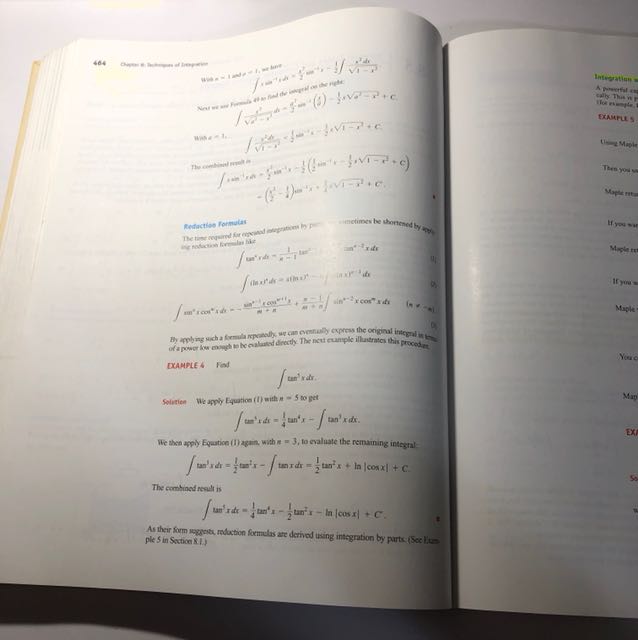 464 Chapter 8: Techniques of Integration
With n = 1 and a = 1, we have
∫ x sin⁻¹ x dx = x²/2 sin⁻¹ x − 1/2 ∫ x² dx/√(1 − x²)
Next we use Formula 49 to find the integral on the right:
∫ x²/√(a² − x²) dx = a²/2 sin⁻¹ (x/a) − 1/2 x√(a² − x²) + C.
With a = 1,
∫ x² dx/√(1 − x²) = 1/2 sin⁻¹ x − 1/2 x√(1 − x²) + C.
The combined result is
∫ x sin⁻¹ x dx = x²/2 sin⁻¹ x − 1/2 (1/2 sin⁻¹ x − 1/2 x√(1 − x²) + C)
= (x²/2 − 1/4) sin⁻¹ x + 1/4 x√(1 − x²) + C'.
Reduction Formulas
The time required for repeated integrations by sometimes be shortened by
ing reduction formulas like
∫ tanⁿ x dx = 1/(n − 1) tan tanⁿ⁻² x dx (1)
∫ (ln x)ⁿ dx = x(ln x)ⁿ − (ln x)ⁿ⁻¹ dx (2)
∫ sinⁿ x cosᵐ x dx = − sinⁿ⁻¹ x cosᵐ⁺¹ x/(m + n) + (n − 1)/(m + n) ∫ sinⁿ⁻² x cosᵐ x dx (n ≠ −m)
(3)
By applying such a formula repeatedly, we can eventually express the original integral in terms
of a power low enough to be evaluated directly. The next example illustrates this procedure.
EXAMPLE 4 Find
∫ tan⁵ x dx.
Solution We apply Equation (1) with n = 5 to get
∫ tan⁵ x dx = 1/4 tan⁴ x − ∫ tan³ x dx.
We then apply Equation (1) again, with n = 3, to evaluate the remaining integral:
∫ tan³ x dx = 1/2 tan² x − ∫ tan x dx = 1/2 tan² x + ln |cos x| + C.
The combined result is
∫ tan⁵ x dx = 1/4 tan⁴ x − 1/2 tan² x − ln |cos x| + C'.
As their form suggests, reduction formulas are derived using integration by parts. (See Exam-
ple 5 in Section 8.1.)
Integration
A powerful
cally. This is
(for example,
EXAMPLE 5
Using Maple
Then you
Maple
If you
Maple
If you
Maple
You
Map